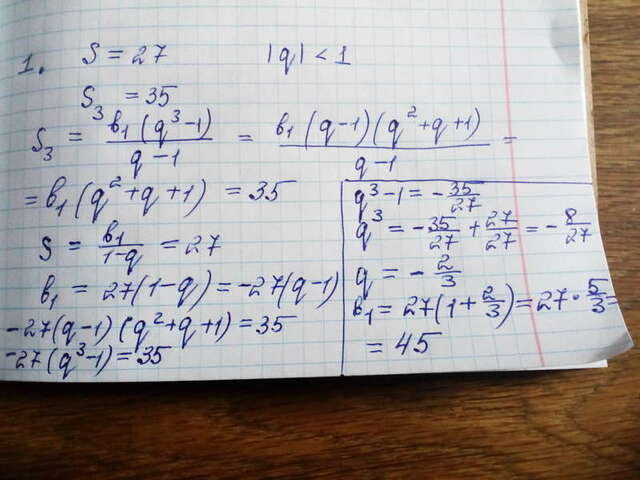 1. S = 27 |q| < 1
S₃ = 35
S₃ = в₁(q³-1)/(q-1) = в₁(q-1)(q²+q+1)/(q-1) =
= в₁(q²+q+1) = 35
S = в₁/(1-q) = 27
в₁ = 27(1-q) = -27(q-1)
-27(q-1)(q²+q+1) = 35
-27(q³-1) = 35
q³-1 = -35/27
q³ = -35/27 + 27/27 = -8/27
q = -2/3
в₁ = 27(1+2/3) = 27·5/3 =
= 45